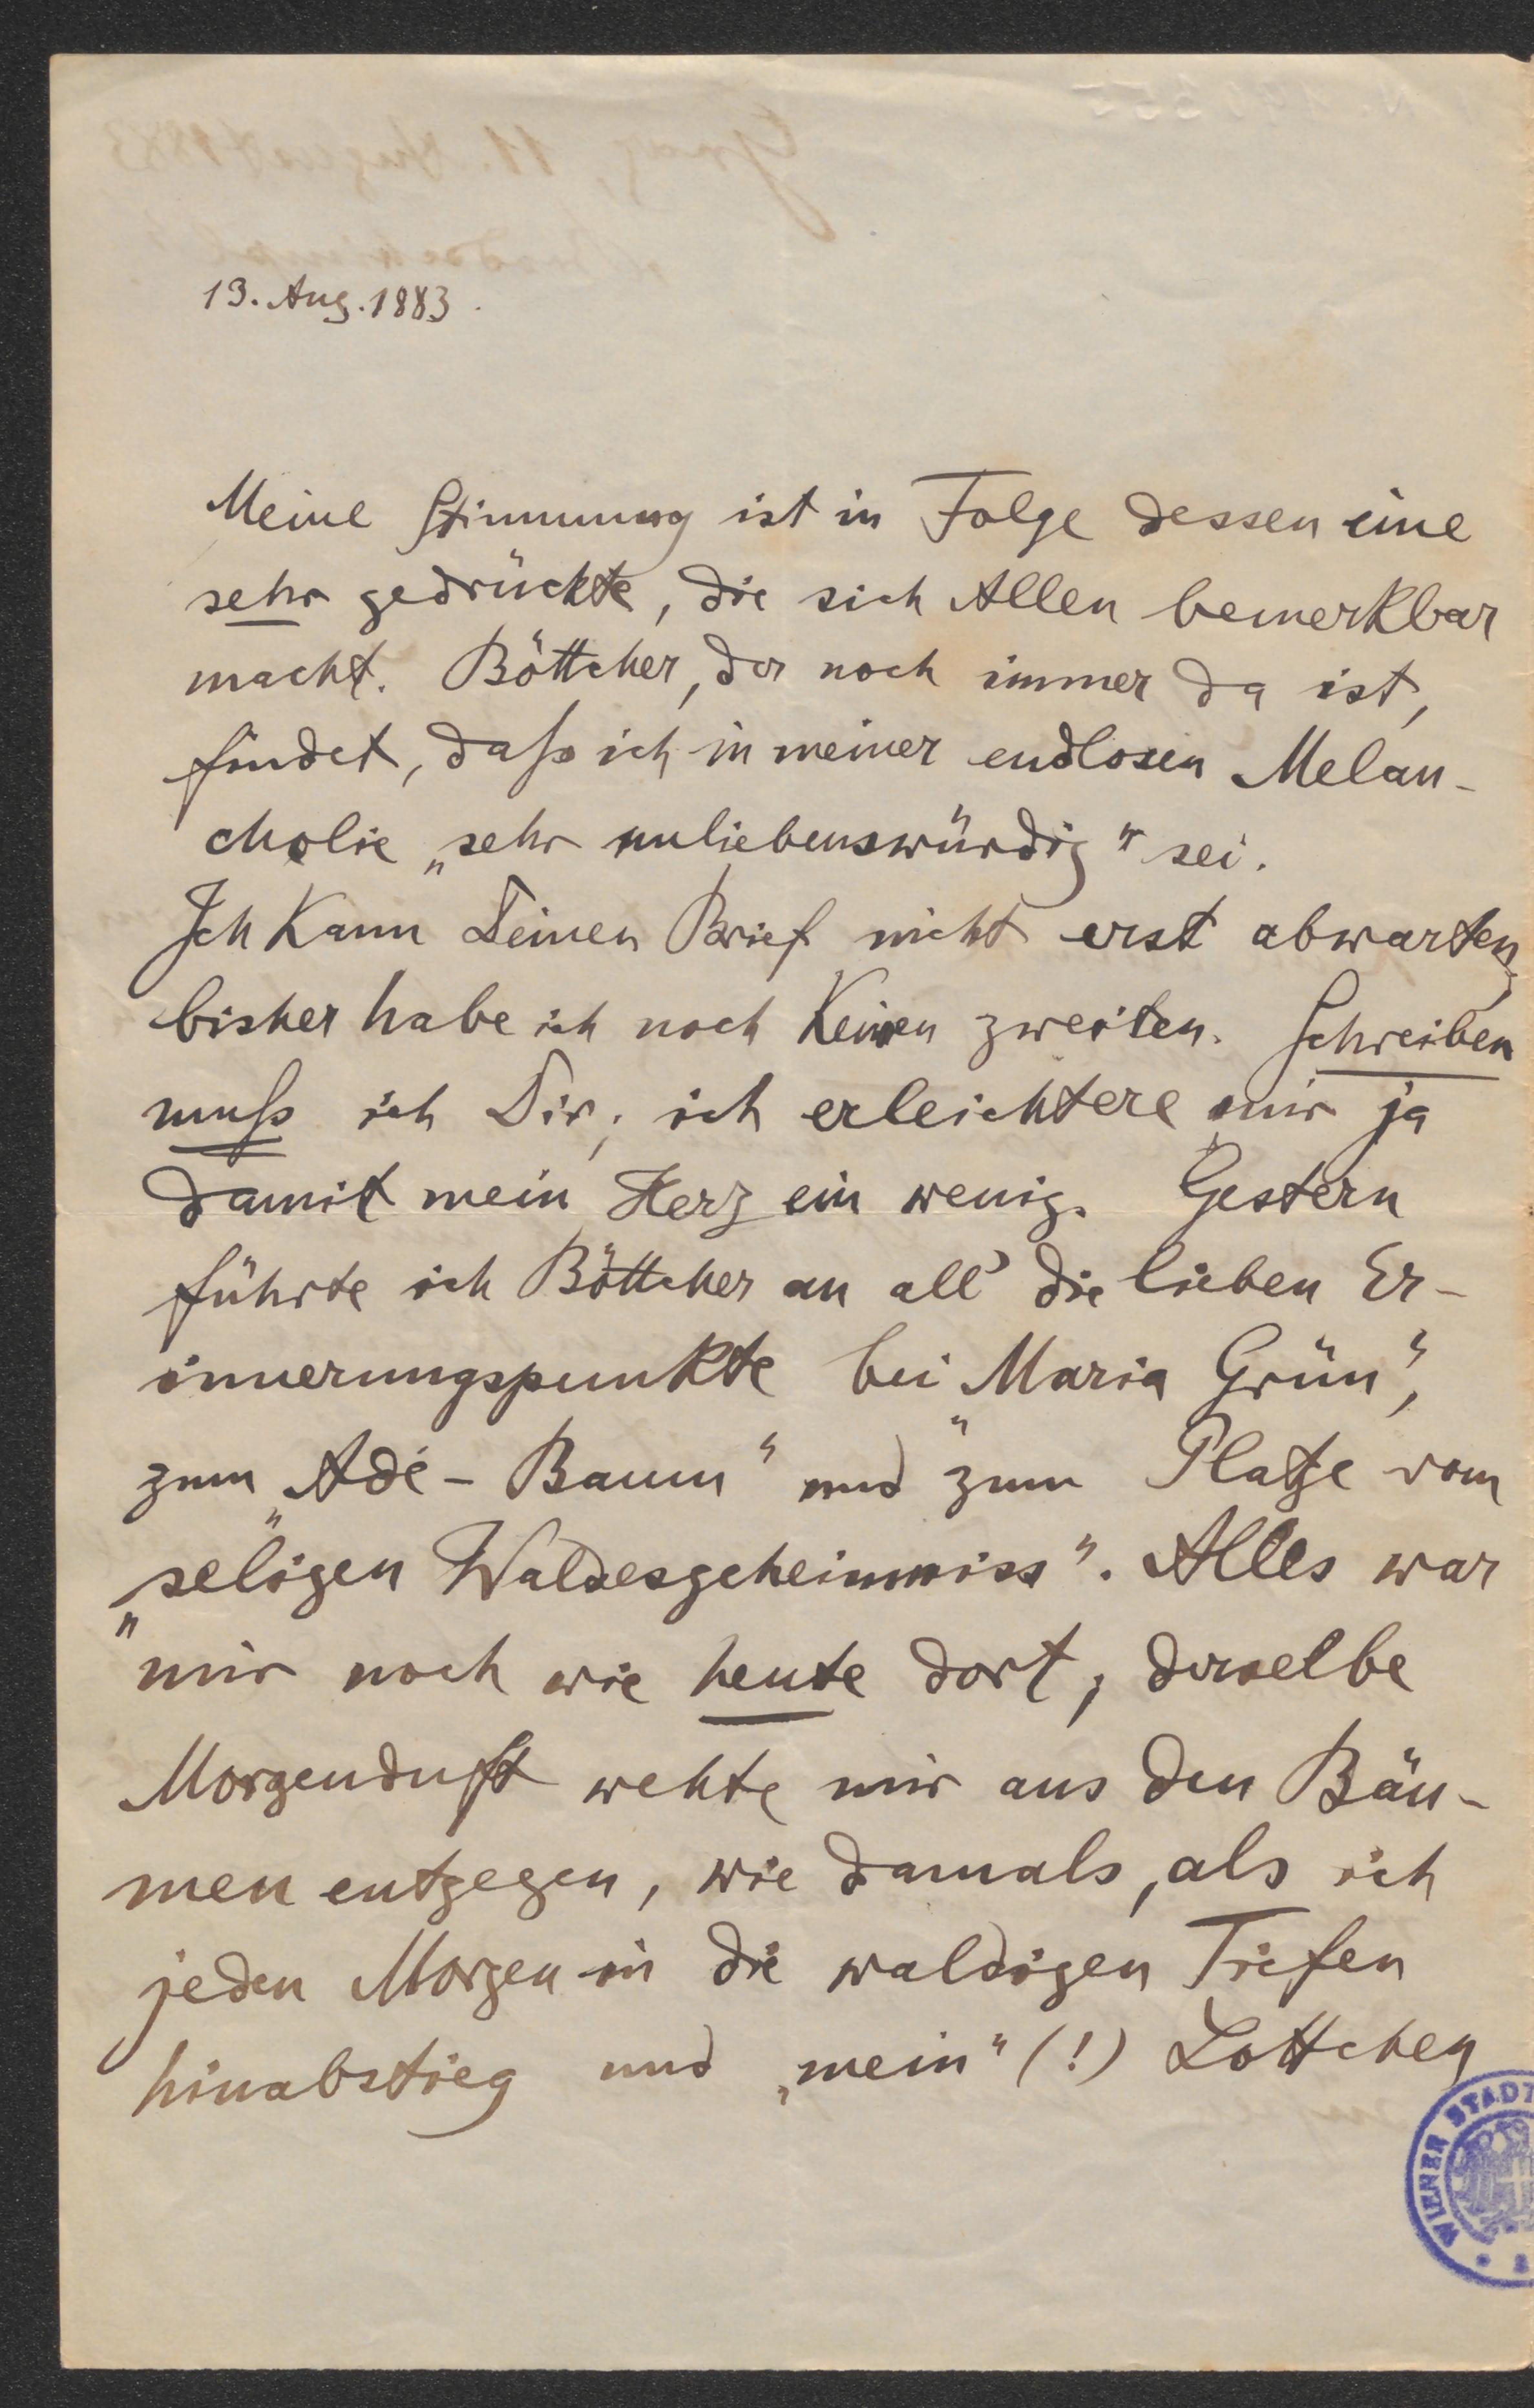 13. Aug. 1883.
Meine Stimmung ist in Folge dessen eine
sehr gedrückte, die sich Allen bemerkbar
macht. Böttcher, der noch immer da ist,
findet, daß ich in meiner endlosen Melan-
cholie „sehr unliebenswürdig“ sei.
Ich kann Deinen Brief nicht erst abwarten,
bisher habe ich noch keinen zweiten. Schreiben
muß ich Dir; ich erleichtere mir ja
damit mein Herz ein wenig. Gestern
führte ich Böttcher an all' die lieben Er-
innerungspunkte bei „Maria Grün“,
zum „Adé-Baum“ und zum Platze vom
„seligen Waldesgeheimniss“. Alles war
mir noch wie heute dort, derselbe
Morgenduft wehte mir aus den Bäu-
men entgegen, wie damals, als ich
jeden Morgen in die waldigen Tiefen
hinabstieg und „mein“ (!) Lottchen
WIENER STADT